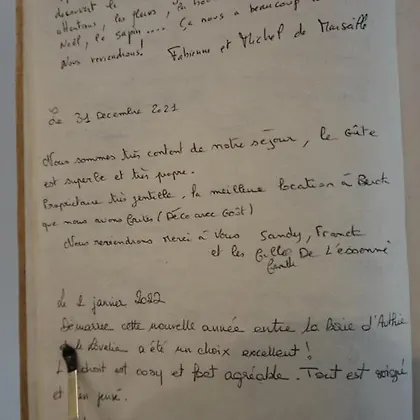 découvert le
attentions, les fleurs, la
Noël, le sapin.... Ça nous a beaucoup
Nous reviendrons! Fabienne et Michel de Marseille
Le 31 Decembre 2021
Nous sommes très content de notre séjour, le Gîte
est superbe et très propre.
Propriétaire très gentille, la meilleure location à Berck
que nous avons faites (Déco avec Goût)
Nous reviendrons merci à Vous Sandy, Franck
et les De L'essonne
Le 2 janvier 2022
Démarrer cette nouvelle année entre la Baie d'Authie
et le a été un choix excellent!
L'endroit est cosy et fort agréable. Tout est soigné
et bien pensé.